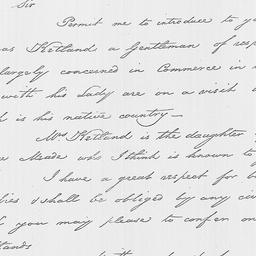 Sir
Permit me to introduce to
as Ketland a Gentleman of
largely concerned in Commerce in
with his Lady are on a visit
is his native country—
Mrs Ketland is the daughter
Meade who I think is known to
I have a great respect for
shall be obliged by any
you may please to confer on